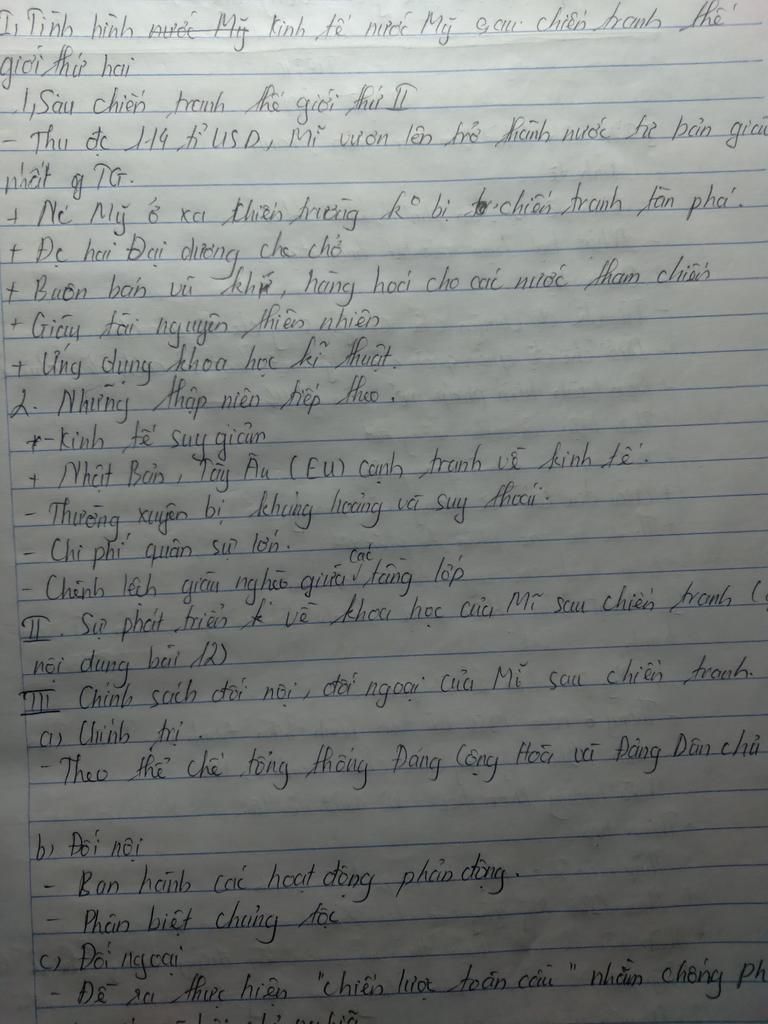 I, Tình hình nước Mỹ kinh tế nước Mỹ sau chiến tranh thế
giới thứ hai
1, Sau chiến tranh thế giới thứ II
- Thu đc 114 tỉ USD, Mĩ vươn lên trở thành nước tư bản giàu
nhất TG.
+ Nc Mỹ ở xa chiến trường ko bị chiến tranh tàn phá.
+ Đc hai Đại dương che chở
+ Buôn bán vũ khí, hàng hoá cho các nước tham chiến
+ Giàu tài nguyên thiên nhiên
+ Ứng dụng khoa học kĩ thuật.
2. Những thập niên tiếp theo.
- Kinh tế suy giảm
+ Nhật Bản, Tây Âu (EU) cạnh tranh về kinh tế.
- Thường xuyên bị khủng hoảng và suy thoái.
- Chi phí quân sự lớn.
- Chênh lệch giàu nghèo giữa các tầng lớp
II. Sự phát triển k về khoa học của Mĩ sau chiến tranh (
nội dung bài 12)
III Chính sách đối nội, đối ngoại của Mĩ sau chiến tranh.
a) Chính trị.
- Theo thể chế tổng thống Đảng Cộng Hoà và Đảng Dân chủ
b) Đối nội
- Ban hành các hoạt động phản động.
- Phân biệt chủng tộc
c) Đối ngoại
- Đề ra thực hiện "chiến lược toàn cầu" nhằm chống ph